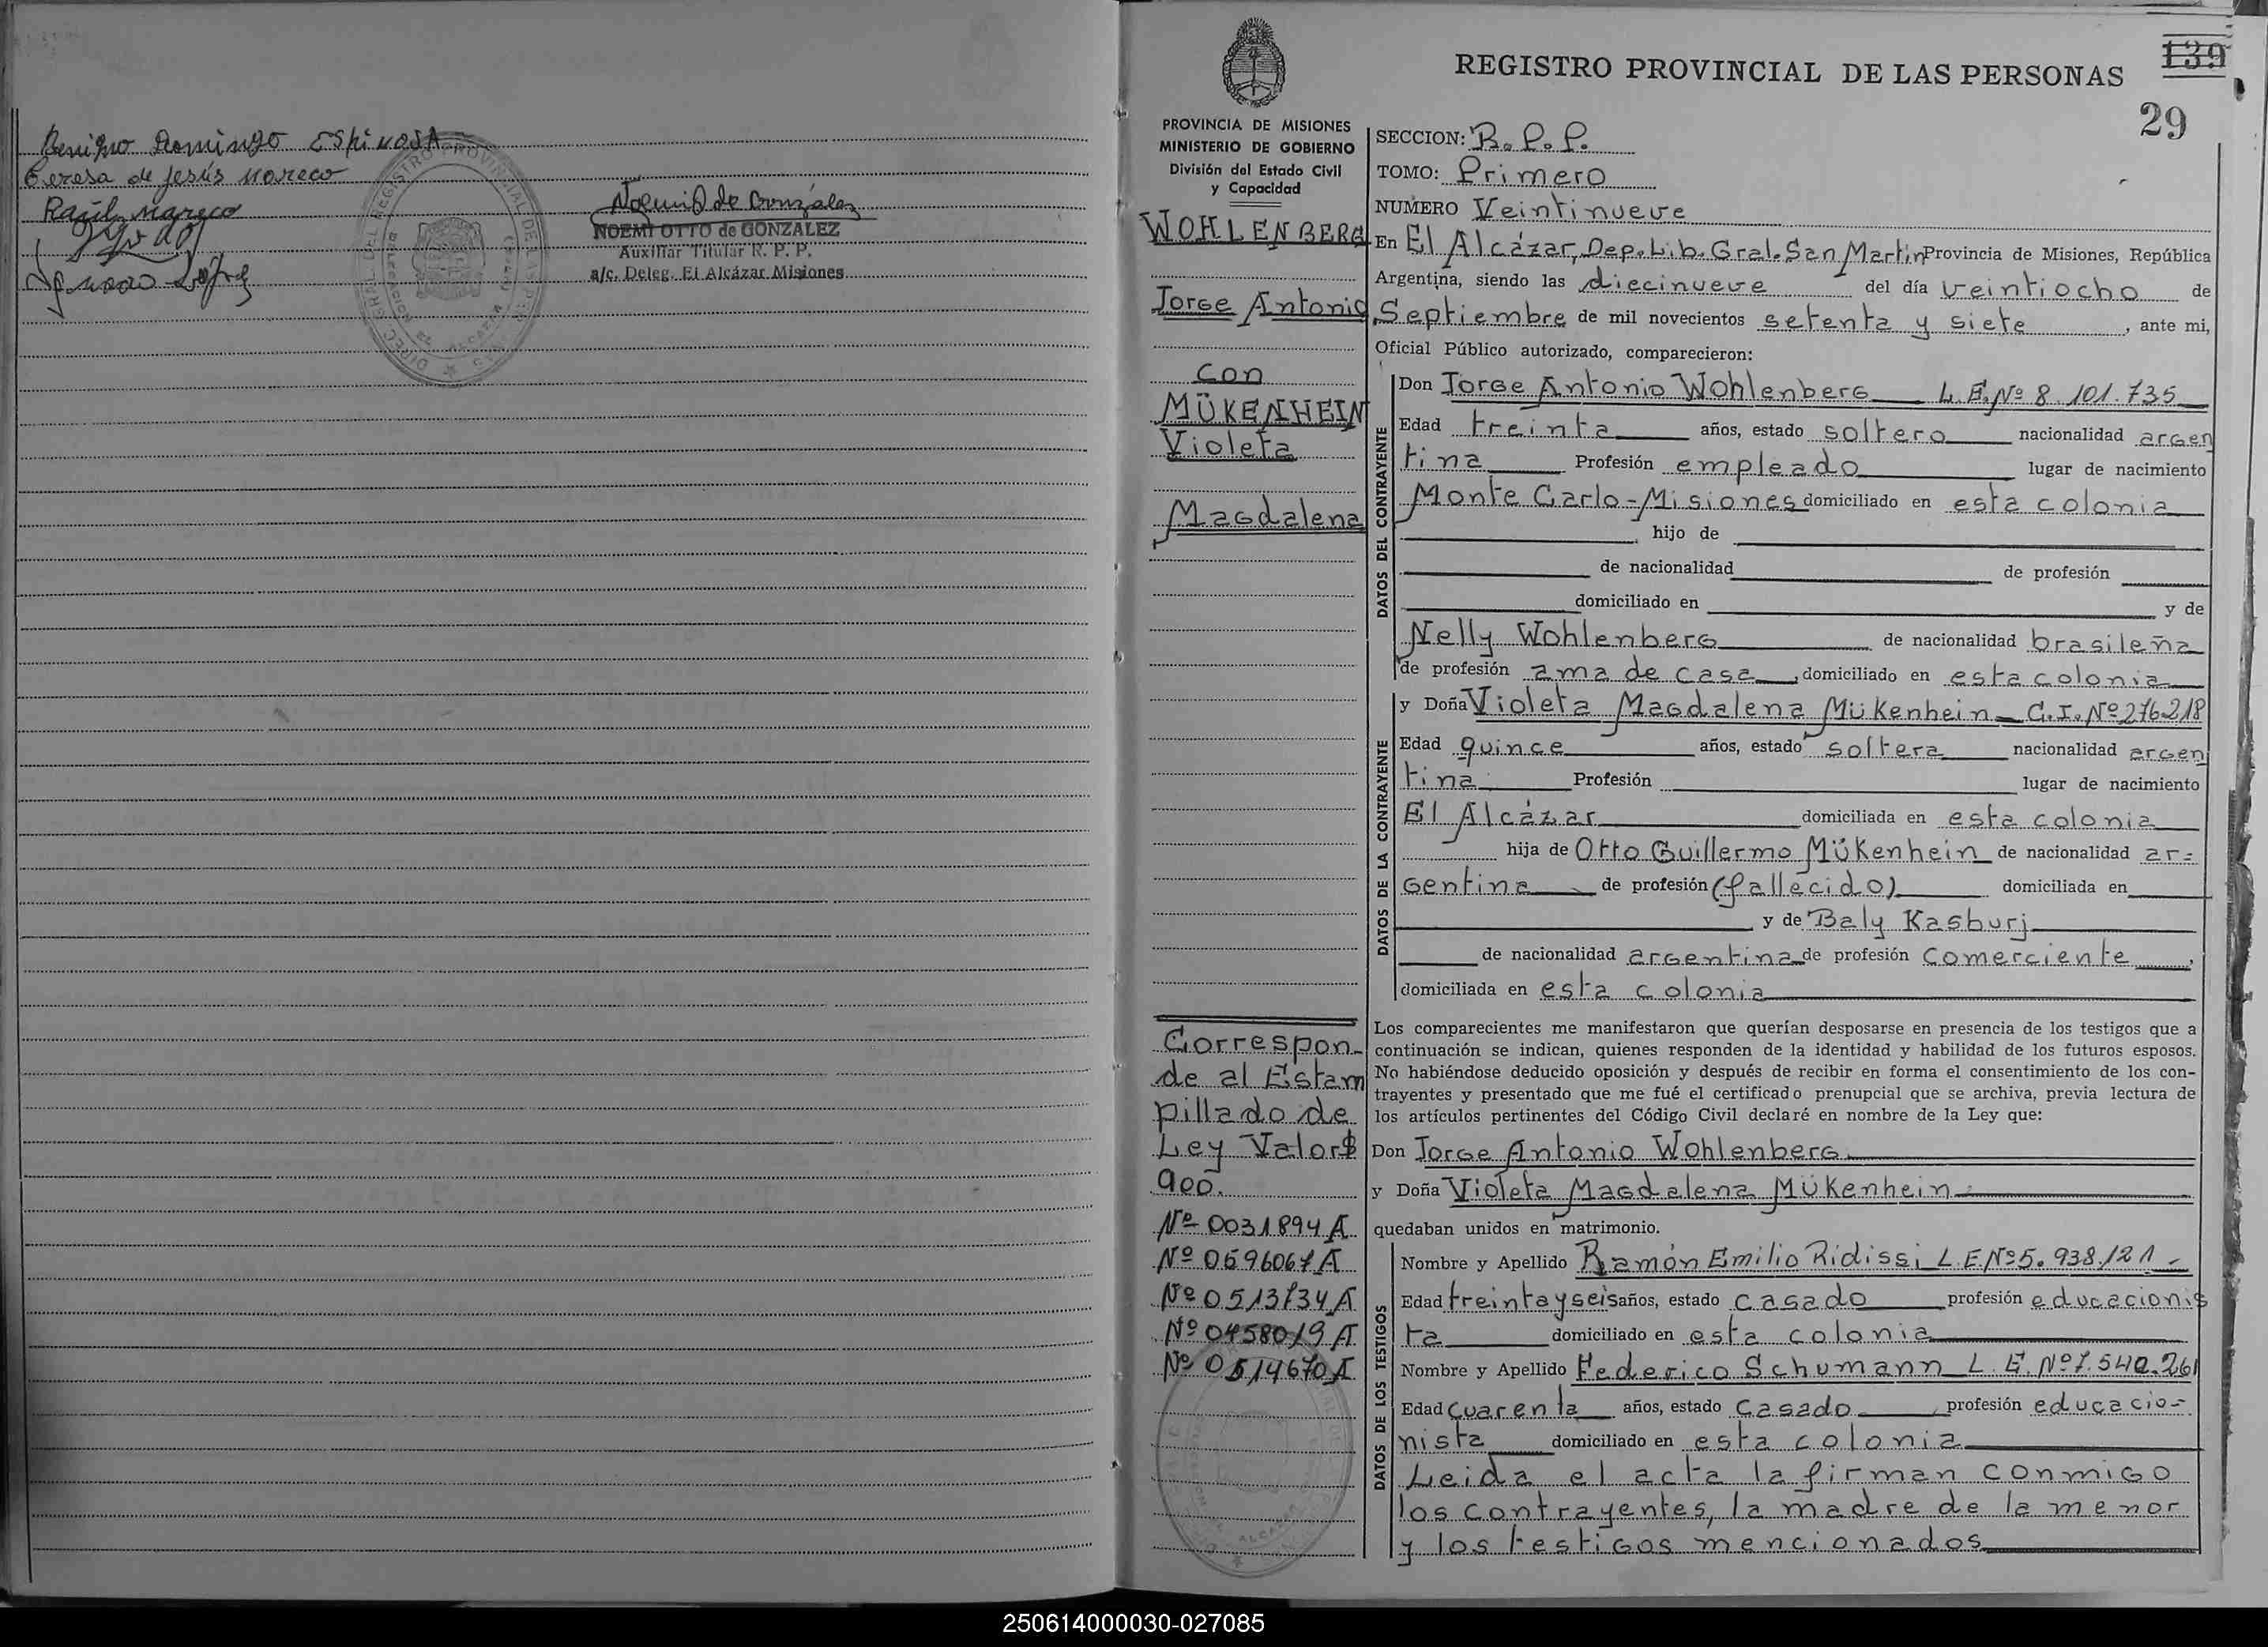 Benigno Domingo ESPINOSA
Teresa de Jesús Mareco
Raúl Mareco
Noemi O de González
NOEMI OTTO de GONZALEZ
Auxiliar Titular R. P. P.
a/c. Deleg. El Alcázar Misiones
REGISTRO PROVINCIAL DE LAS PERSONAS
139
29
PROVINCIA DE MISIONES
MINISTERIO DE GOBIERNO
División del Estado Civil
y Capacidad
WOHLENBERG
Jorge Antonio
con
MÜKENHEIN
Violeta
Magdalena
Correspon-
de al Estam
pillado de
Ley Valor$
900.
Nº 0031894 A
Nº 0596067 A
Nº 0513734 A
Nº 0458019 A
Nº 0514670 A
SECCION: R. P. P.
TOMO: Primero
NUMERO Veintinueve
En El Alcázar, Dep. Lib. Gral. San Martín Provincia de Misiones, República
Argentina, siendo las diecinueve del día veintiocho de
Septiembre de mil novecientos setenta y siete, ante mi,
Oficial Público autorizado, comparecieron:
DATOS DEL CONTRAYENTE
Don Jorge Antonio Wohlenberg L.E. Nº 8.101.735
Edad treinta años, estado soltero nacionalidad argen
tina Profesión empleado lugar de nacimiento
Monte Carlo-Misiones domiciliado en esta colonia
, hijo de
de nacionalidad de profesión
domiciliado en y de
Nelly Wohlenberg de nacionalidad brasileña
de profesión ama de casa, domiciliado en esta colonia
DATOS DE LA CONTRAYENTE
y Doña Violeta Magdalena Mükenhein C.I. Nº 276218
Edad quince años, estado soltera nacionalidad argen
tina Profesión lugar de nacimiento
El Alcázar domiciliada en esta colonia
hija de Otto Guillermo Mükenhein de nacionalidad ar=
gentina de profesión (fallecido) domiciliada en
y de Baly Kasburj
de nacionalidad argentina de profesión comerciente,
domiciliada en esta colonia
Los comparecientes me manifestaron que querían desposarse en presencia de los testigos que a
continuación se indican, quienes responden de la identidad y habilidad de los futuros esposos.
No habiéndose deducido oposición y después de recibir en forma el consentimiento de los con-
trayentes y presentado que me fué el certificado prenupcial que se archiva, previa lectura de
los artículos pertinentes del Código Civil declaré en nombre de la Ley que:
Don Jorge Antonio Wohlenberg
y Doña Violeta Magdalena Mükenhein
quedaban unidos en matrimonio.
DATOS DE LOS TESTIGOS
Nombre y Apellido Ramón Emilio Ridissi L.E. Nº 5.938.121
Edad treinta y seis años, estado casado profesión educacionis
ta domiciliado en esta colonia
Nombre y Apellido Federico Schumann L.E. Nº 7.540.261
Edad cuarenta años, estado casado profesión educacio-
nista domiciliado en esta colonia
Leida el acta la firman conmigo
los contrayentes, la madre de la menor
y los testigos mencionados
250614000030-027085